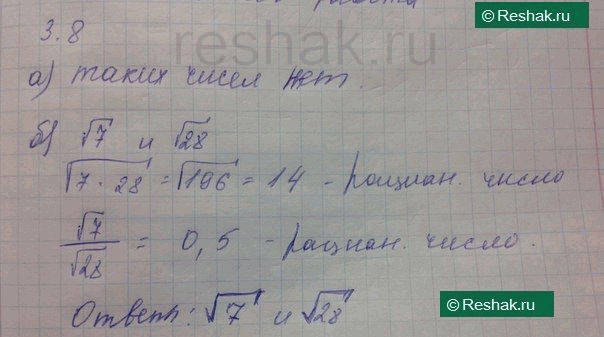 работа
Reshak.ru
3.8
reshak.ru
а) таких чисел нет.
б) √7 и √28
√7·28 = √196 = 14 - рациан. число
√7/√28 = 0,5 - рациан. число.
Ответ: √7 и √28
Reshak.ru